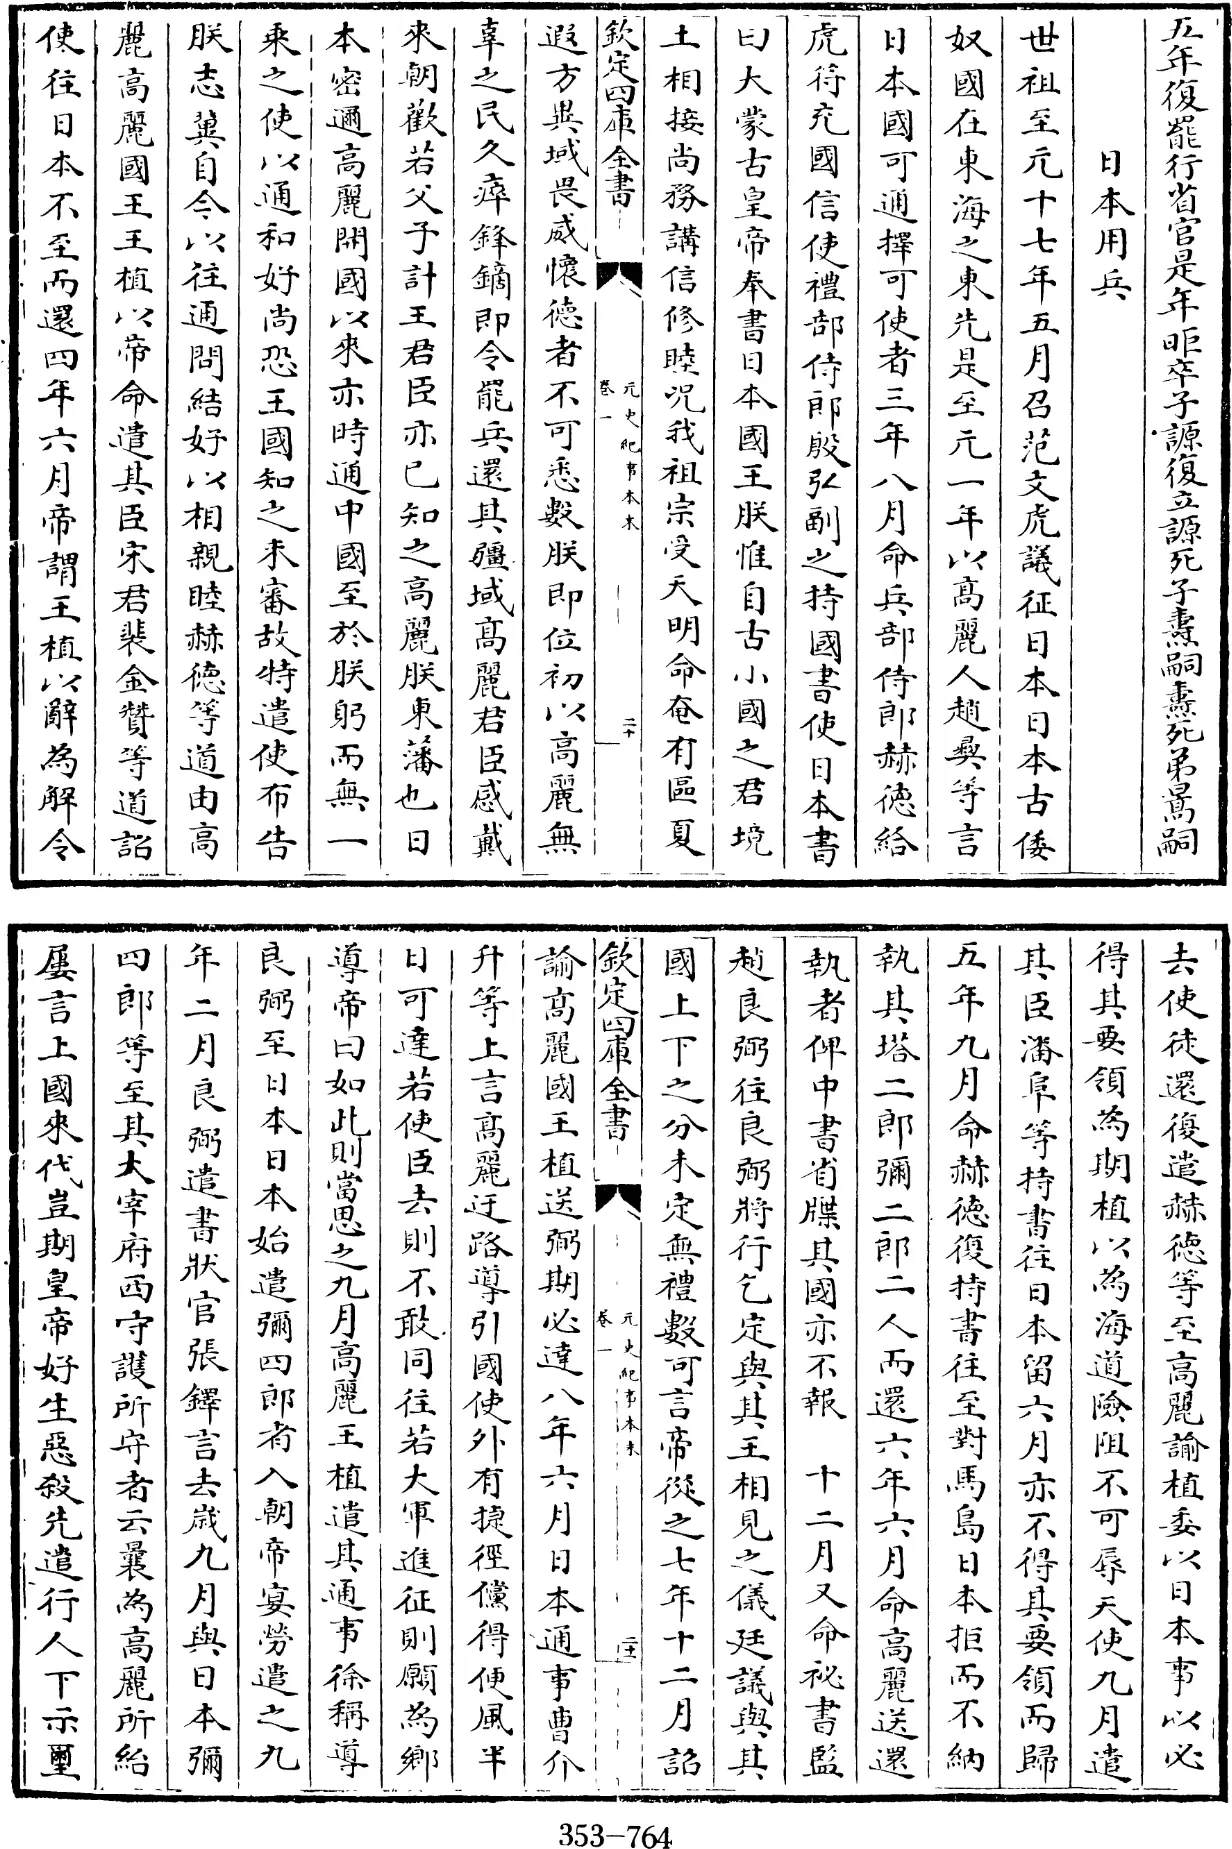 五年復罷行省官是年昛卒子諒復立諒死子燾嗣燾死弟暠嗣
日本用兵
世祖至元十七年五月召范文虎議征日本日本古倭
奴國在東海之東先是至元一年以高麗人趙彝等言
日本國可通擇可使者三年八月命兵部侍郎赫德給
虎符充國信使禮部侍郎殷弘副之持國書使日本書
曰大蒙古皇帝奉書日本國王朕惟自古小國之君境
土相接尚務講信修睦况我祖宗受天明命奄有區夏
欽定四庫全書
元史紀事本末
卷一
二十
遐方異域畏威懷德者不可悉數朕即位初以高麗無
辜之民久瘁鋒鏑即令罷兵還其疆域高麗君臣感戴
來朝歡若父子計王君臣亦已知之高麗朕東藩也日
本密邇高麗開國以來亦時通中國至於朕躬而無一
乘之使以通和好尚恐王國知之未審故特遣使布告
朕志冀自今以往通問結好以相親睦赫德等道由高
麗高麗國王王植以帝命遣其臣宋君裴金贊等道詔
使往日本不至而還四年六月帝謂王植以辭為解令
去使徒還復遣赫德等至高麗諭植委以日本事以必
得其要領為期植以為海道險阻不可辱天使九月遣
其臣潘阜等持書往日本留六月亦不得其要領而歸
五年九月命赫德復持書往至對馬島日本拒而不納
執其塔二郎彌二郎二人而還六年六月命高麗送還
執者俾中書省牒其國亦不報　十二月又命祕書監
趙良弼往良弼將行乞定與其王相見之儀廷議與其
國上下之分未定無禮數可言帝從之七年十二月詔
欽定四庫全書
元史紀事本末
卷一
二十一
諭高麗國王植送弼期必達八年六月日本通事曹介
升等上言高麗迂路導引國使外有捷徑儻得便風半
日可達若使臣去則不敢同往若大軍進征則願為鄉
導帝曰如此則當思之九月高麗王植遣其通事徐稱導
良弼至日本日本始遣彌四郎者入朝帝宴勞遣之九
年二月良弼遣書狀官張鐸言去歲九月與日本彌
四郎等至其大宰府西守護所守者云曩為高麗所紿
屢言上國來代豈期皇帝好生惡殺先遣行人下示璽
353-764